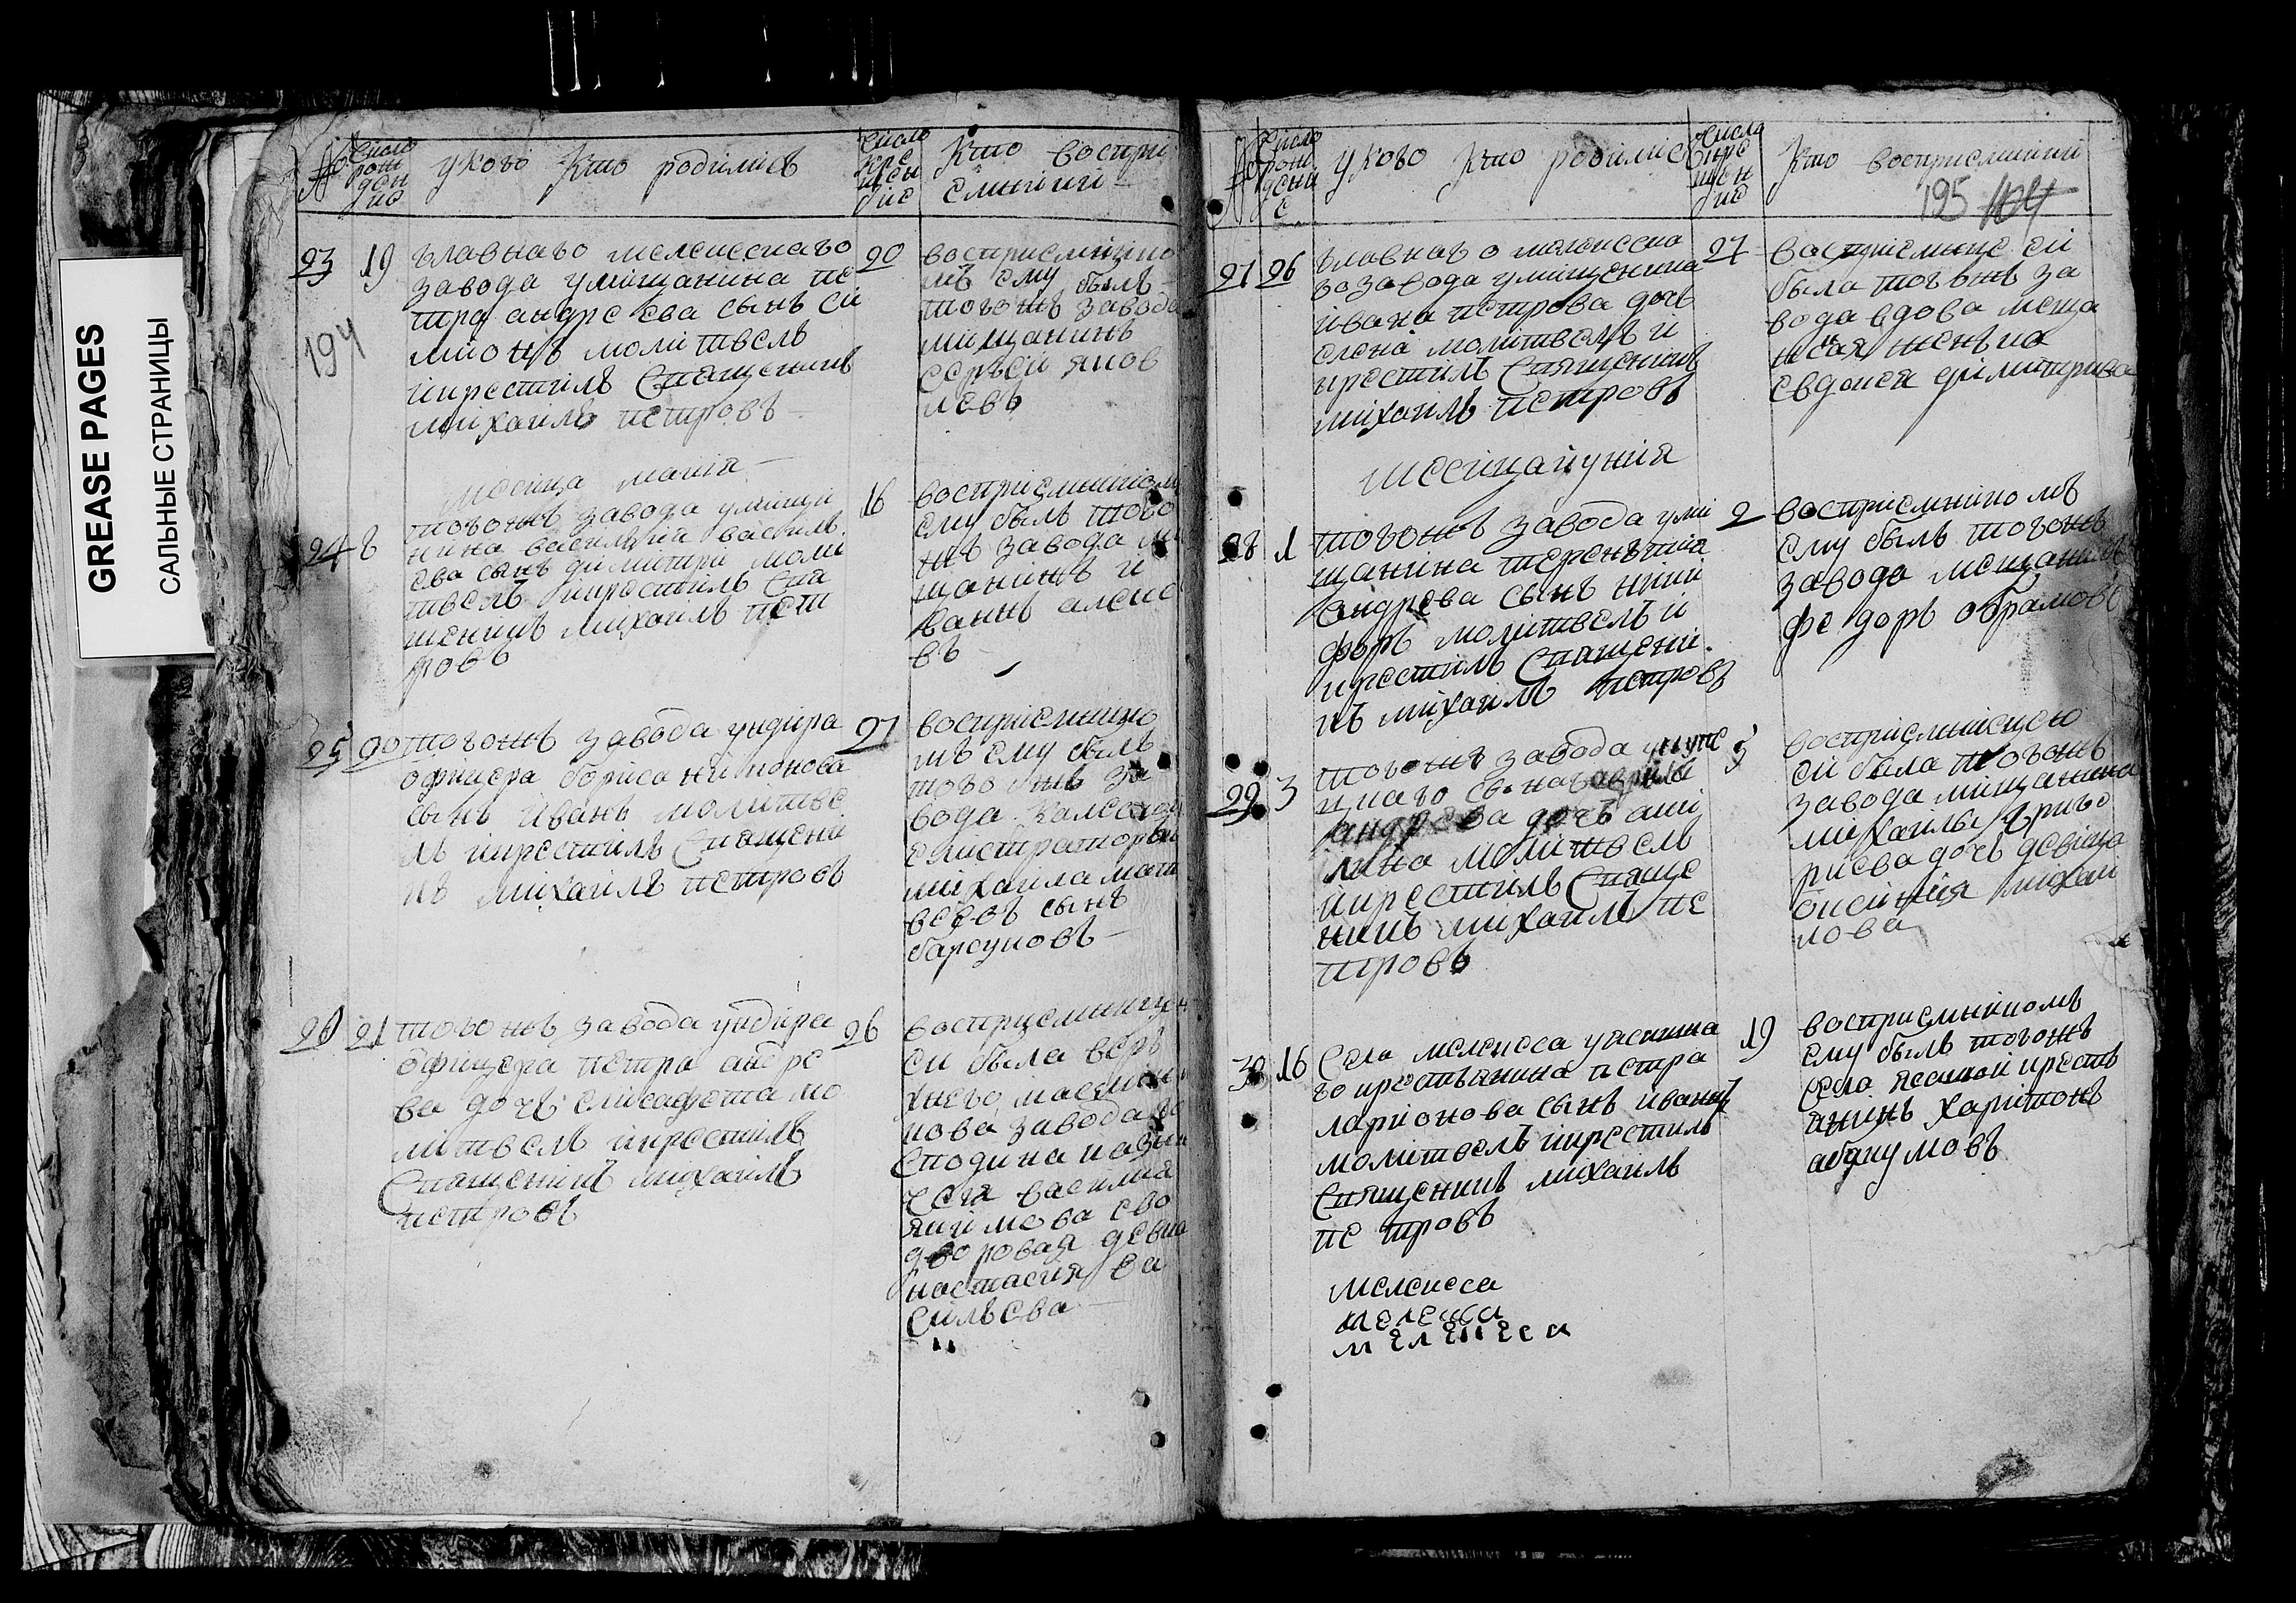 GREASE PAGES
САЛЬНЫЕ СТРАНИЦЫ
№ Число рождение
у кого Кто родились
Число крещение
Кто воспри
емники
23 19 главнаго мелекескаго 20
завода умищанина пе
тра андреева сынъ си
мионъ молитвелъ
икрестилъ Священикъ
михаилъ петровъ
194
восприемнико
мъ ему былъ
тогожъ завода
мищанинъ
сергей яков
левъ
Месеца маия
24 8 тогожъ завода умищи 16
нина василий василь
ева сынъ димитри моли
твелъ икрестилъ Свя
щеникъ михаилъ пет
ровъ
восприемником
ему былъ того
жъ завода ми
щанинъ и
ванъ алекс
въ
25 20 тогожъ завода ундира 21
офицера бориса никонова
сынъ иванъ молитве
лъ икрестилъ Священи
къ михаилъ петровъ
восприемнико
мъ ему былъ
того жъ за
вода
михаила мат
веевъ сынъ
барсуковъ
26 21 тогожъ завода ундира 26
офицера петра андре
ва дочь елисафета мо
литвелъ икрестилъ
Священикъ михаилъ
петровъ
восприемницею
ей была верх
него
кова завода го
сподина
василия
якимова ево
дворовая девка
настасия ва
сильева
№ Число рождение
у кого Кто родились
Число крещение
Кто восприемники
195 104
27 26 главнаго мелекеска 27
го завода умищенина
ивана петрова дочь
елена молитвелъ и
крестилъ Священикъ
михаилъ петровъ
восприемнице ей
была тогожъ за
вода вдова меща
нская женъка
евдокея димитриева
Месеца иуния
28 1 тогожъ завода уми 2
щанина терентиа
андрева сынъ ники
форъ молитвелъ и
крестилъ Священи
къ михаилъ петровъ
восприемникомъ
ему былъ тогожъ
завода мещанинъ
федоръ абрамовъ
29 3 тогожъ завода укупе 5
цкаго сына гаврила
андрева дочь аки
лина молитвелъ
икрестилъ Свяще
никъ михаилъ пе
тровъ
восприемницею
ей была тогожъ
завода мищанина
михаилы григо
риева дочь девица
ксиния михаи
лова
30 16 Села мелекеса уясашна 19
го крестьянина петра
ларионова сынъ иванъ
молитвелъ икрестилъ
Священикъ михаилъ
пе тровъ
восприемникомъ
ему былъ тогожъ
села ясашной кресть
анинъ харитонъ
абдкумовъ
мелекеса
мелекеса
мелекеса